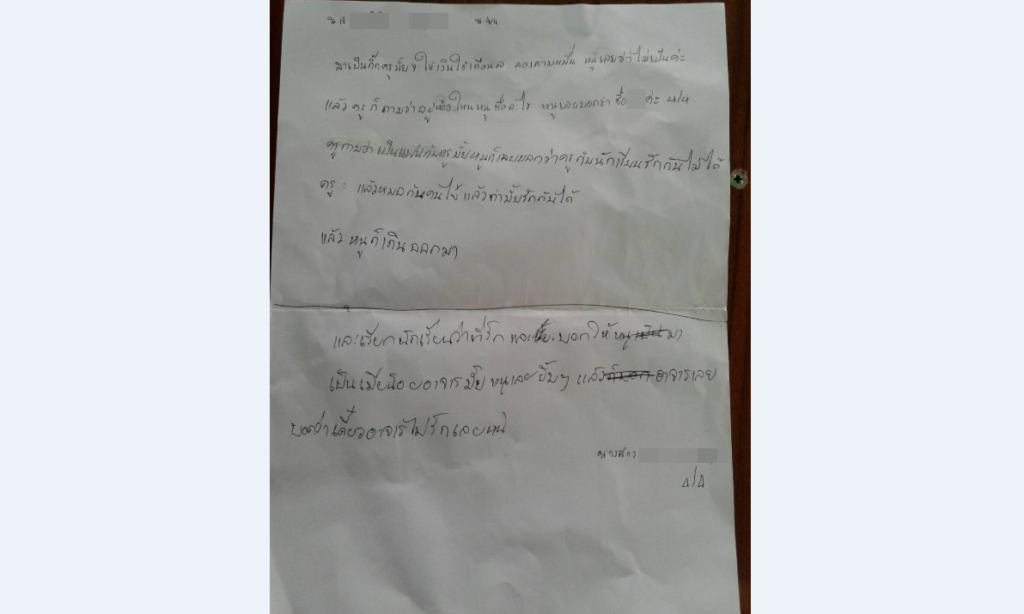 ม.4/4
มาเป็นกิ๊กครูมั้ยๆ ให้เงินใช้เดือนล สองสามหมื่น หนูเลยว่าไม่เป็นค่ะ
แล้วครูก็ถามว่าอยู่ห้องไหนหนู ชื่ออะไร หนูเลยบอกว่า ชื่อ ค่ะ 4/4
ครูถามว่าเป็นแฟนกับครูมั้ยหนูก็เลยบอกว่าครูกับนักเรียนรักกันไม่ได้
ครู : แล้วหมอกับคนไข้ แล้วทำมั้ยรักกันได้
แล้วหนูก็เดินออกมา
และเรียกนักเรียนว่าที่รัก และ บอกให้หนู มา
เป็นเมียน้อยอาจารมั้ย หนูเลยยิ้มๆ แล้ว อาจารเลย
บอกว่าเดี๋ยวอาจารไม่รักเลยหนิ
นางสาว
4/4